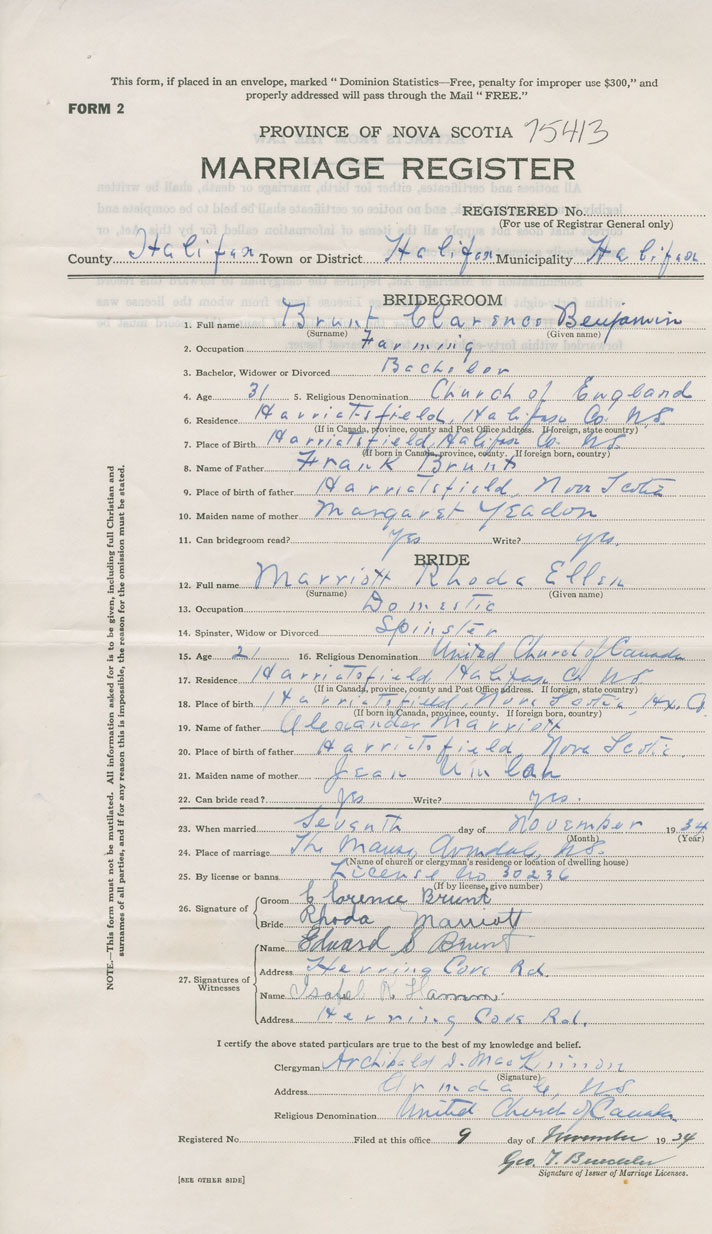 This form, if placed in an envelope, marked "Dominion Statistics—Free, penalty for improper use $300," and
properly addressed will pass through the Mail "FREE."
FORM 2
PROVINCE OF NOVA SCOTIA 75413
MARRIAGE REGISTER
REGISTERED No.
(For use of Registrar General only)
County Halifax Town or District Halifax Municipality Halifax
BRIDEGROOM
1. Full name Brunt Clarence Benjamin
(Surname) (Given name)
2. Occupation Farming
3. Bachelor, Widower or Divorced Bachelor
4. Age 31 5. Religious Denomination Church of England
6. Residence Harriatsfield, Halifax Co. NS
(If in Canada, province, county and Post Office address. If foreign, state country)
7. Place of Birth Harriatsfield, Halifax Co. NS.
(If born in Canada, province, county. If foreign born, country)
8. Name of Father Frank Brunt
9. Place of birth of father Harriatsfield, Nova Scotia
10. Maiden name of mother Margaret Yeadon
11. Can bridegroom read? Yes Write? yes.
BRIDE
12. Full name Marriott Rhoda Ellen
(Surname) (Given name)
13. Occupation Domestic
14. Spinster, Widow or Divorced Spinster
15. Age 21 16. Religious Denomination United Church of Canada
17. Residence Harriatsfield Halifax Co NS
(If in Canada, province, county and Post Office address. If foreign, state country)
18. Place of birth Harriatsfield, Nova Scotia, Hx. Co.
(If born in Canada, province, county. If foreign born, country)
19. Name of father Alexander Marriott
20. Place of birth of father Harriatsfield, Nova Scotia.
21. Maiden name of mother Jean
22. Can bride read? yes Write? yes.
23. When married Seventh day of November 1934
(Month) (Year)
24. Place of marriage The Manse, Armdale, NS.
(Name of church or clergyman's residence or location of dwelling house)
25. By license or banns License No 30236
(If by license, give number)
26. Signature of Groom Clarence Brunt
Bride Rhoda Marriott
27. Signatures of Witnesses
Name Edward S Brunt
Address Herring Cove Rd.
Name Isabel R. Hamm.
Address Herring Cove Rd.
I certify the above stated particulars are true to the best of my knowledge and belief.
Clergyman Archibald D. MacKinnon
(Signature)
Address Armdale, NS
Religious Denomination United Church of Canada
Registered No. Filed at this office 9 day of November 1934
Geo. T.
Signature of Issuer of Marriage Licenses.
[SEE OTHER SIDE]
NOTE.—This form must not be mutilated. All information asked for is to be given, including full Christian and
surnames of all parties, and if for any reason this is impossible, the reason for the omission must be stated.